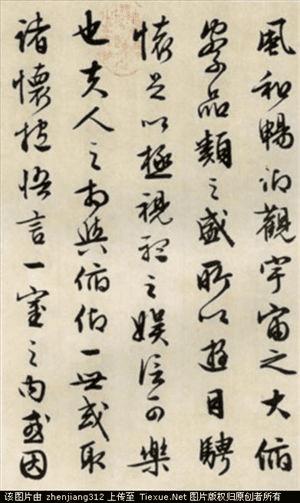 風和暢仰觀宇宙之大俯
察品類之盛所以遊目騁
懷足以極視聽之娛信可樂
也夫人之相與俯仰一世或取
諸懷抱悟言一室之內或因
该图片由 zhenjiang312 上传至 Tiexue.Net 图片版权归原创者所有